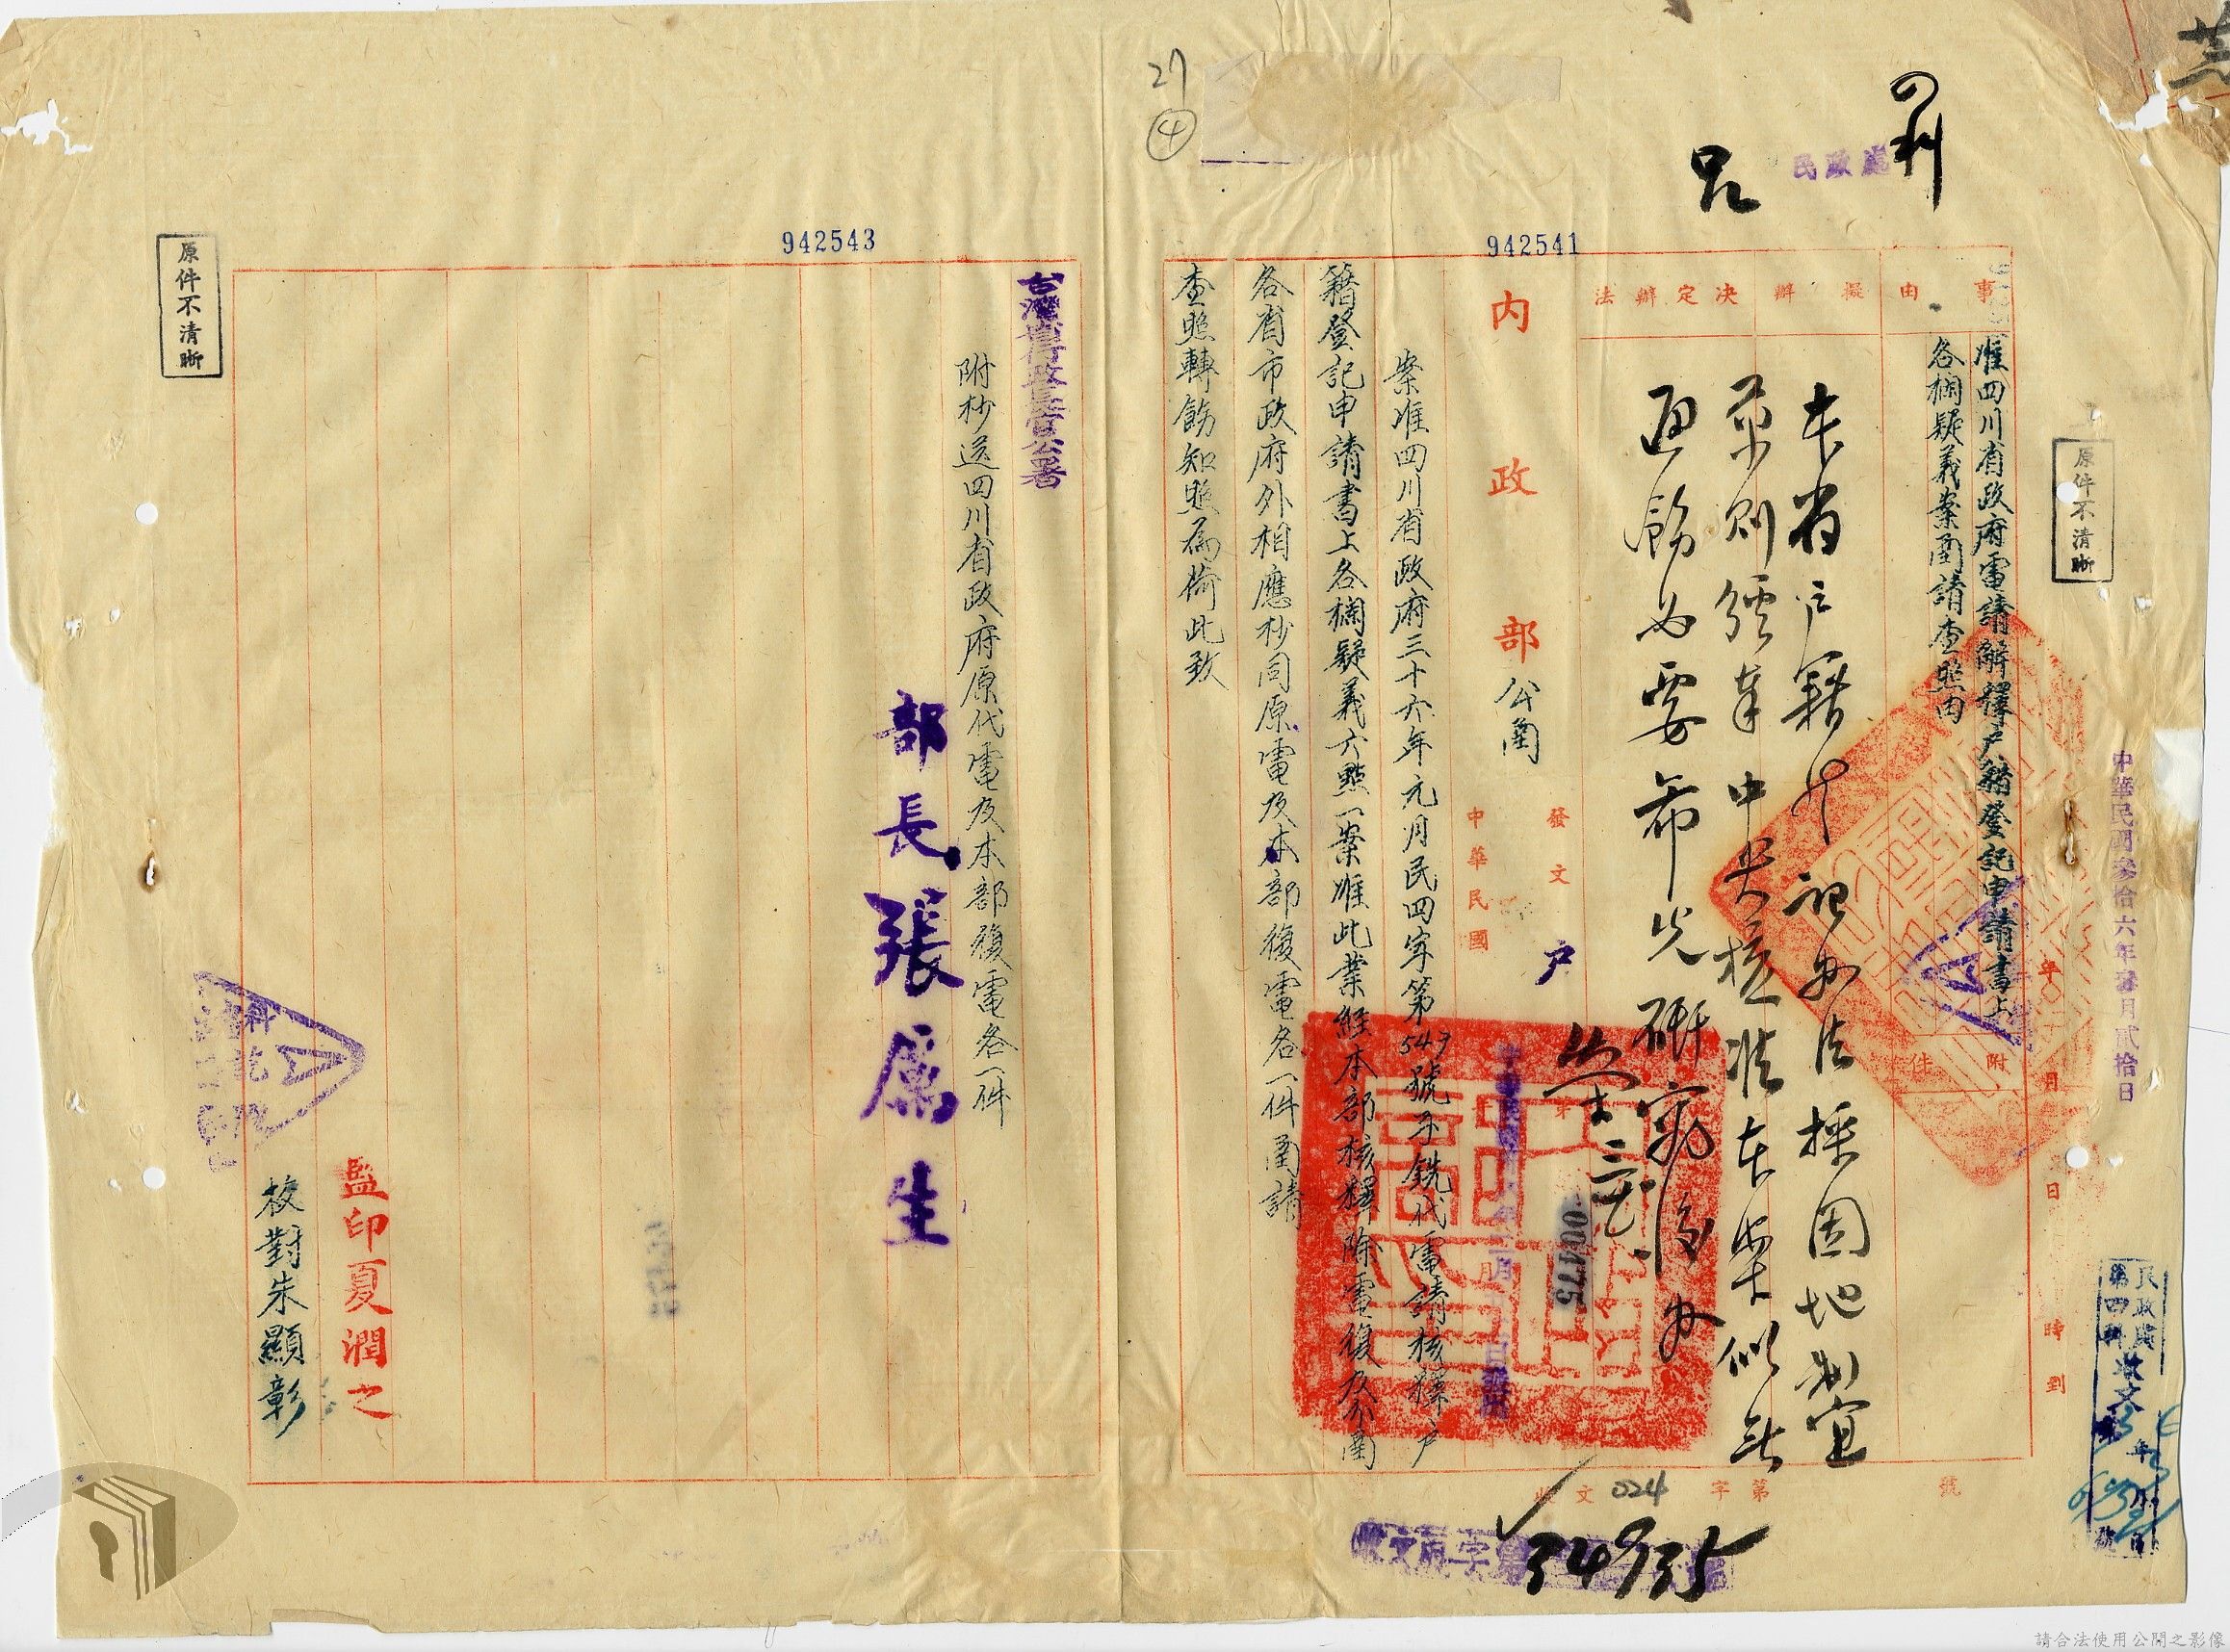 中華民國參拾六年
月貳拾日
年
月
日
時到
原件不清晰
民政處
第四科
收文
事由
擬辦
決定辦法
准四川省政府電請解釋户籍登記申請書上
各欄疑義案函請查照由
附件
本省户籍
登記辦法採因地制宜
原則
經奉中央核准本案似無
通飭必要希先研究後办
942541
民政處
內政部公函
發文
户
中華民國
004175
案准四川省政府三十六年元月民四字第549號子銑代電請核釋户
籍登記申請書上各欄疑義六點一案准此業經本部核釋除電復及分函
各省市政府外相應抄同原電及本部復電各一件函請
查照轉飭知照為荷此致
收文
024
字第
號
34935
27
④
942543
台灣省行政長官公署
附抄送四川省政府原代電及本部復電各一件
部長張厲生
監印夏潤之
校對朱顯彰
原件不清晰
請合法使用公開之影像